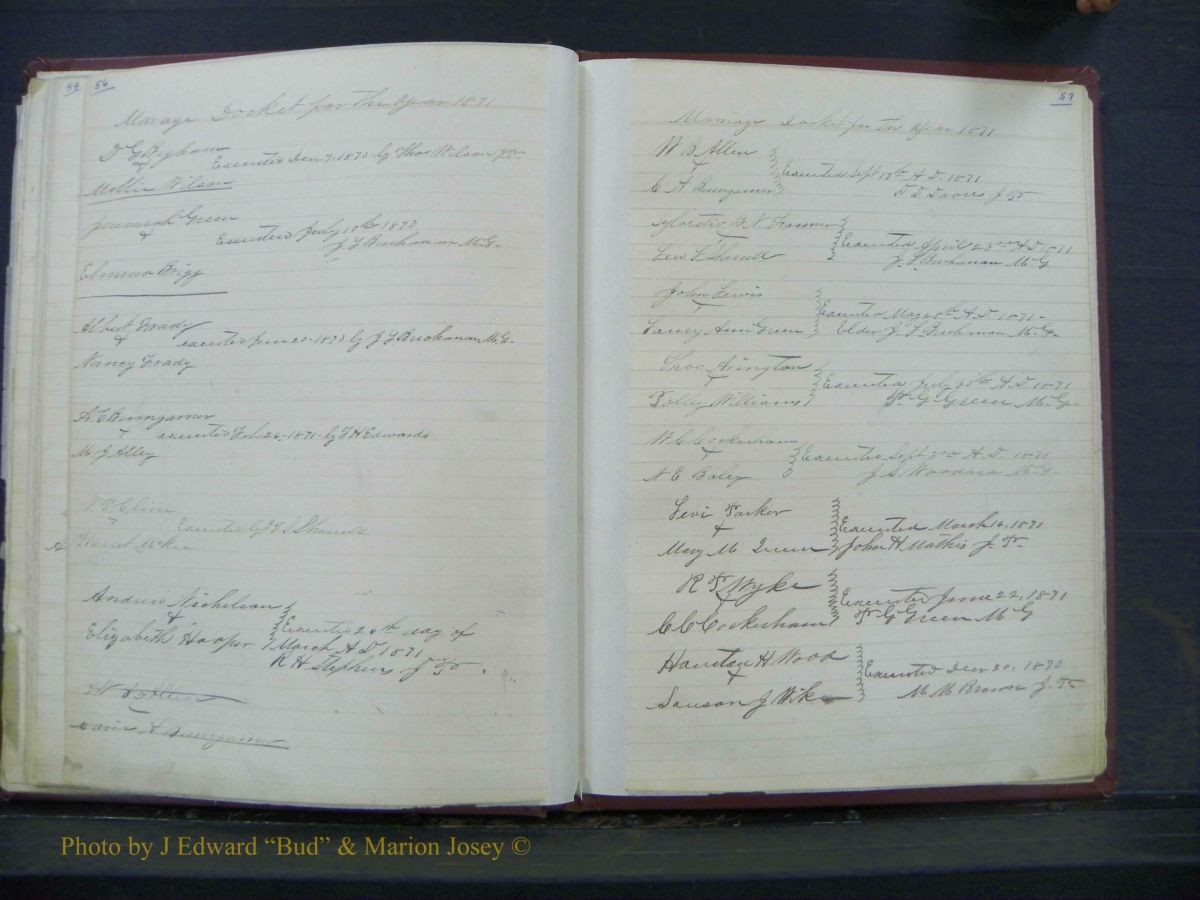 54 56
Marage Docket for the year 1871
D G Bigham
& Executed Decr 7, 1870 by Thos Wilson J.P.
Mollie Wilson
Jeremiah Green
& Executed July 10th 1870
J L Buchanan M.G.
Elmina Brigg
Albert Frady
& executed June 20 1870 by J L Buchanan M.G.
Nancy Frady
A. E. Bumgarner
& executed Feb 26 1871 by F H Edwards
M. J. Alley
&
Executed by
McKee
Andrew Nichelson
&
Elizabeth Hooper Executed 20th day of
March A D 1871
R H Stephens J P.
W B Allen
&
A Bumgarner
57
Marriage Docket for The year 1871
W B Allen
& Executed Sept 17th A. D. 1871
C A Bumgarner D D Davies J. P
Sylvester B. N.
& Executed April 23rd A D 1871
L Sherrill J. L. Buchanan M G
John Lewis
& Executed May 28th A. D. 1871
Ann Green Elder J L Buchanan M. G.
Thos Arington
& Executed July A. D. 1871
Polley Williams P. G. Green M. G.
W. C. Cockerham
& Executed Sept 3rd A. D. 1871
N. E. J. S. Woodard M. G.
Levi Parker
& Executed March 16, 1871
Mary M Queen John H Mathis J. P.
R P Wyke
& Executed June 22, 1871
C C Cockerham P G Green M G
H Wood
& Executed Decr 20, 1870
J Wike M. M. Brown J. P.
Photo by J Edward “Bud” & Marion Josey ©